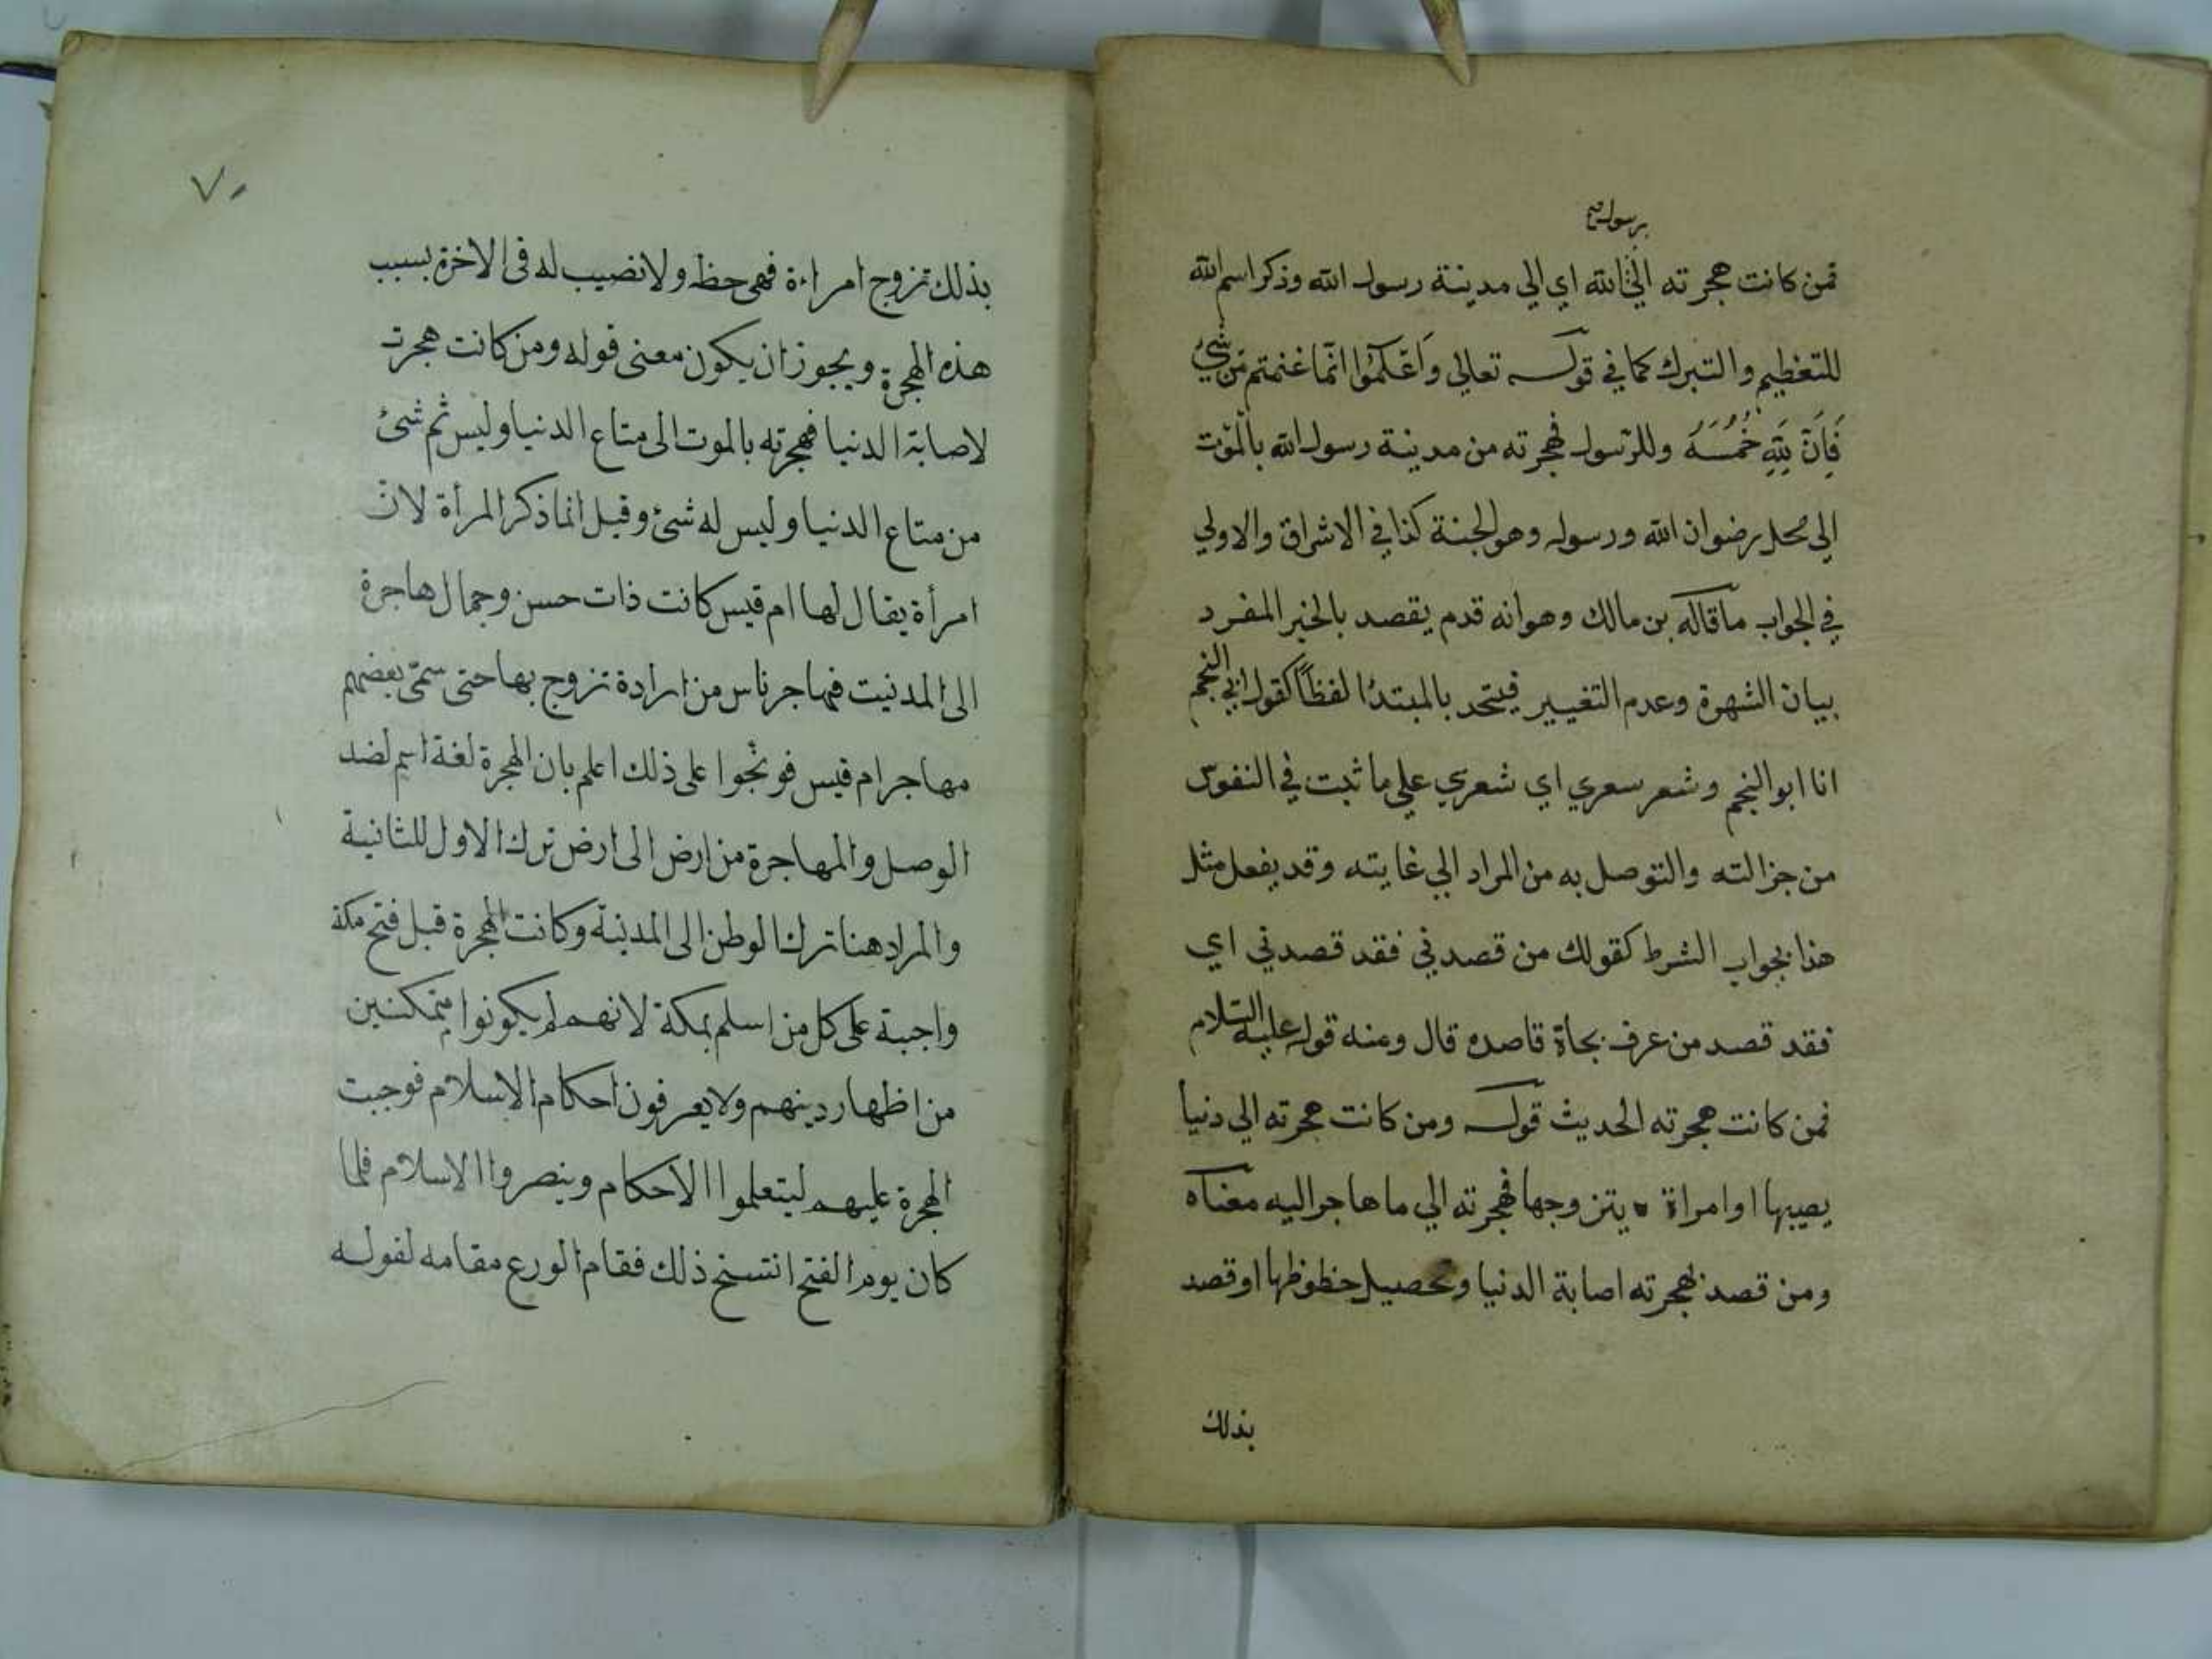 برسوله صح
فمن كانت هجرته الى الله اي الي مدينة رسول الله وذكر اسم الله
للتغظيم والتبرك كما في قوله تعالي وَاعْلَمُوا انّما غنمتم من شئ
فَاِنَّ لِلّهِ خُمُسَهُ وللرّسول فهجرته من مدينة رسول الله بالمَوْت
الى محل رضوان الله ورسوله وهو الجنة كذا في الاشراق والاولي
في الجواب ما قاله بن مالك وهو انه قدم يقصد بالخبر المفرد
بيان الشهرة وعدم التغيير فيتحد بالمبتدأ لفظاً كقول ابي النجم
انا ابو النجم وشعر سعري اي شعري علي ما ثبت في النفوس
من جزالته والتوصل به من المراد الي غايته وقد يفعل مثل
هذا بجواب الشرط كقولك من قصدني فقد قصدني اي
فقد قصد من عرف بجاة قاصده قال ومنه قوله عليه السلام
فمن كانت هجرته الحديث قوله ومن كانت هجرته الي دنيا
يصيبها او امراة يتزوجها فهجرته الي ما هاجر اليه معناه
ومن قصد بهجرته اصابة الدنيا وتحصيل حظوظها او قصد
بذلك
٧٠
بذلك تزوج امراءة فهى حظه ولا نصيب له فى الاخرة بسبب
هذه الهجرة ويجوز ان يكون معنى قوله ومن كانت هجرته
لاصابة الدنيا فهجرته بالموت الى متاع الدنيا وليس ثم شئ
من متاع الدنيا وليس له شئ وقيل انما ذكر المرأة لانّ
امرأة يقال لها ام قيس كانت ذات حسن وجمال هاجرة
الى المدنيت فهاجر ناس من ارادة تزوج بها حتى سمّى بعضهم
مهاجر ام قيس فوبّخوا على ذلك اعلم بان الهجرة لغة اسم لضد
الوصل والمهاجرة من ارض الى ارض ترك الاول للثانية
والمراد هنا ترك الوطن الى المدينة وكانت الهجرة قبل فتح مكة
واجبة على كل من اسلم بمكة لانهم لم يكونوا متمكنين
من اظهار دينهم ولا يعرفون احكام الاسلام فوجبت
الهجرة عليهم ليتعلموا الاحكام وينصروا الاسلام فلما
كان يوم الفتح انتسخ ذلك فقام الورع مقامه لقوله